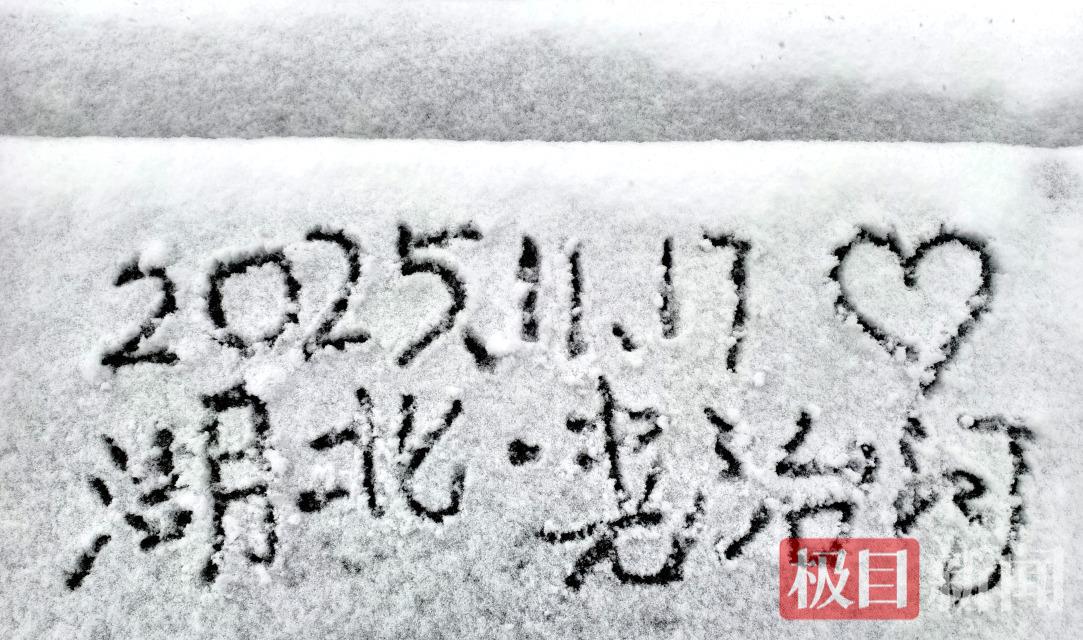 2025.11.17
湖北·老治河
极目新闻